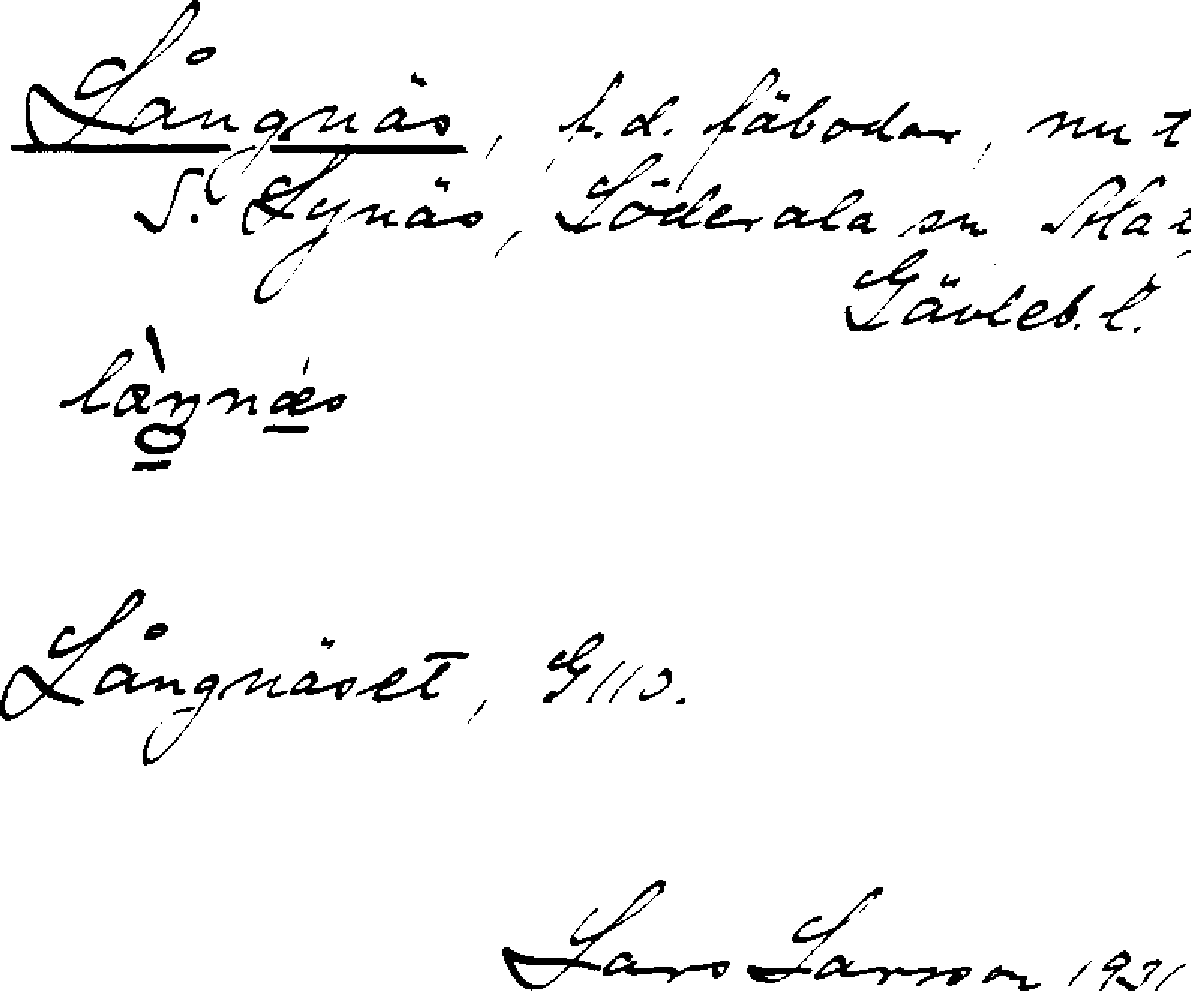 Långnäs, f.d. fäbodar, nu t
S. Lynäs, Söderala sn Ala
Gävleb. l.
Långnäset, G 110.
Lars Larsson 1931